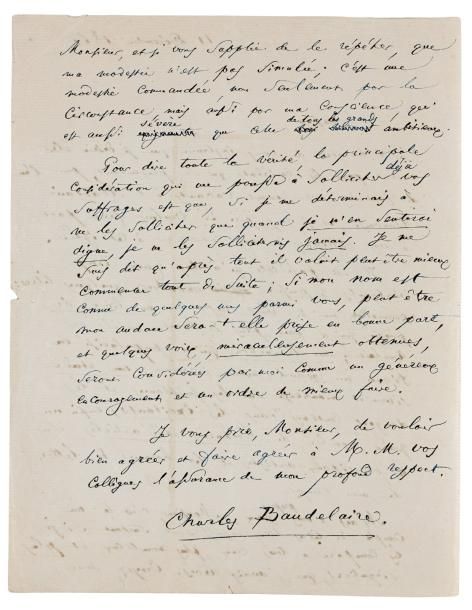 Monsieur, et je vous supplie de le répéter, que
ma modestie n'est pas simulée ; c'est une
modestie commandée non seulement par la
circonstance mais aussi par ma conscience qui
est aussi sévère que celle de tous les grands ambitieux.
Pour dire toute la vérité la principale
considération qui me pousse à solliciter déjà vos
suffrages est que, si je me déterminais à
ne les solliciter que quand je m'en sentirai
digne, je ne les solliciterais jamais. Je me
suis dit qu'après tout il valait peut être mieux
commencer tout de suite ; si mon nom est
connu de quelques uns parmi vous, peut être
mon audace sera-t-elle prise en bonne part,
et quelques voix, miraculeusement obtenues,
seront considérées par moi comme un généreux
encouragement et un ordre de mieux faire.
Je vous prie, Monsieur, de vouloir
bien agréer et faire agréer à M.M. vos
collègues l'assurance de mon profond respect.
Charles Baudelaire.